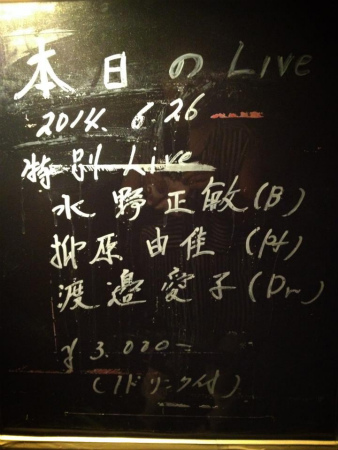 本日のLive
2014. 6. 26
特別Live
水野正敏(B)
柳原由佳(Pf)
渡邉愛子(Dr)
¥3.000-
(1ドリンク付)